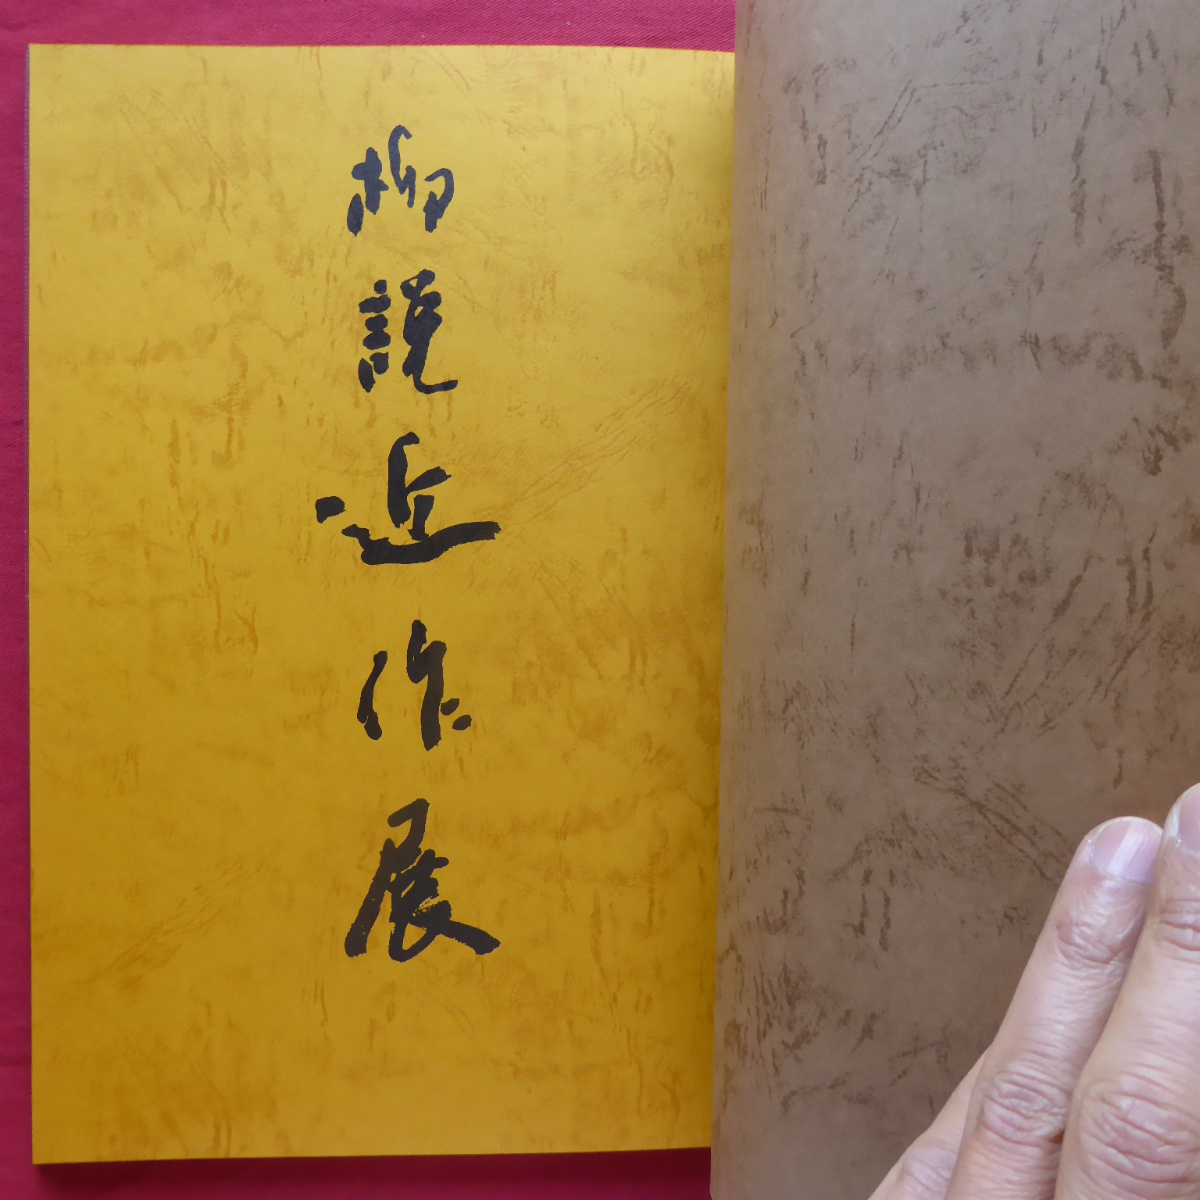 柳説近作展